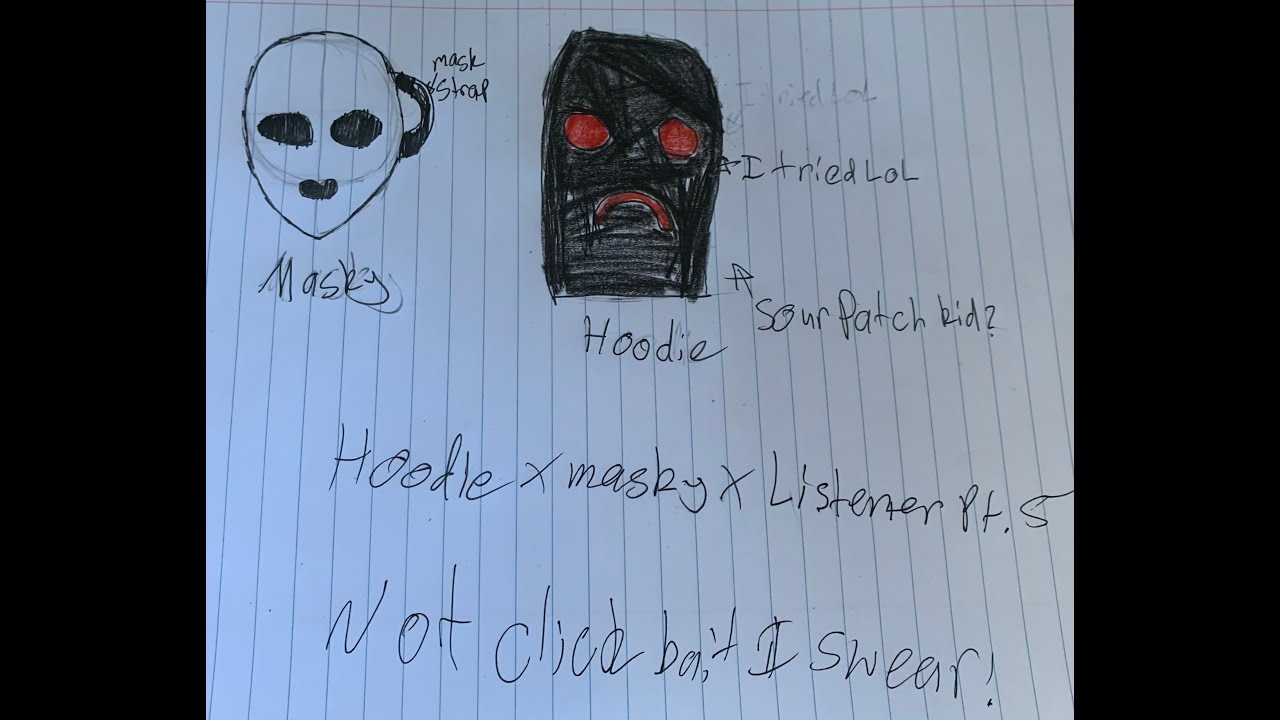 mask
strap
Masky
I tried LOL
I tried LOL
Sour Patch kid?
Hoodie
Hoodie x masky x Listener Pt. 5
Not click bait I swear!